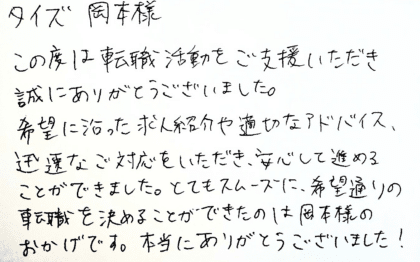 タイズ 岡本様
この度は転職活動をご支援いただき
誠にありがとうございました。
希望に沿った求人紹介や適切なアドバイス、
迅速なご対応をいただき、安心して進める
ことができました。とてもスムーズに、希望通りの
転職を決めることができたのは岡本様の
おかげです。本当にありがとうございました!